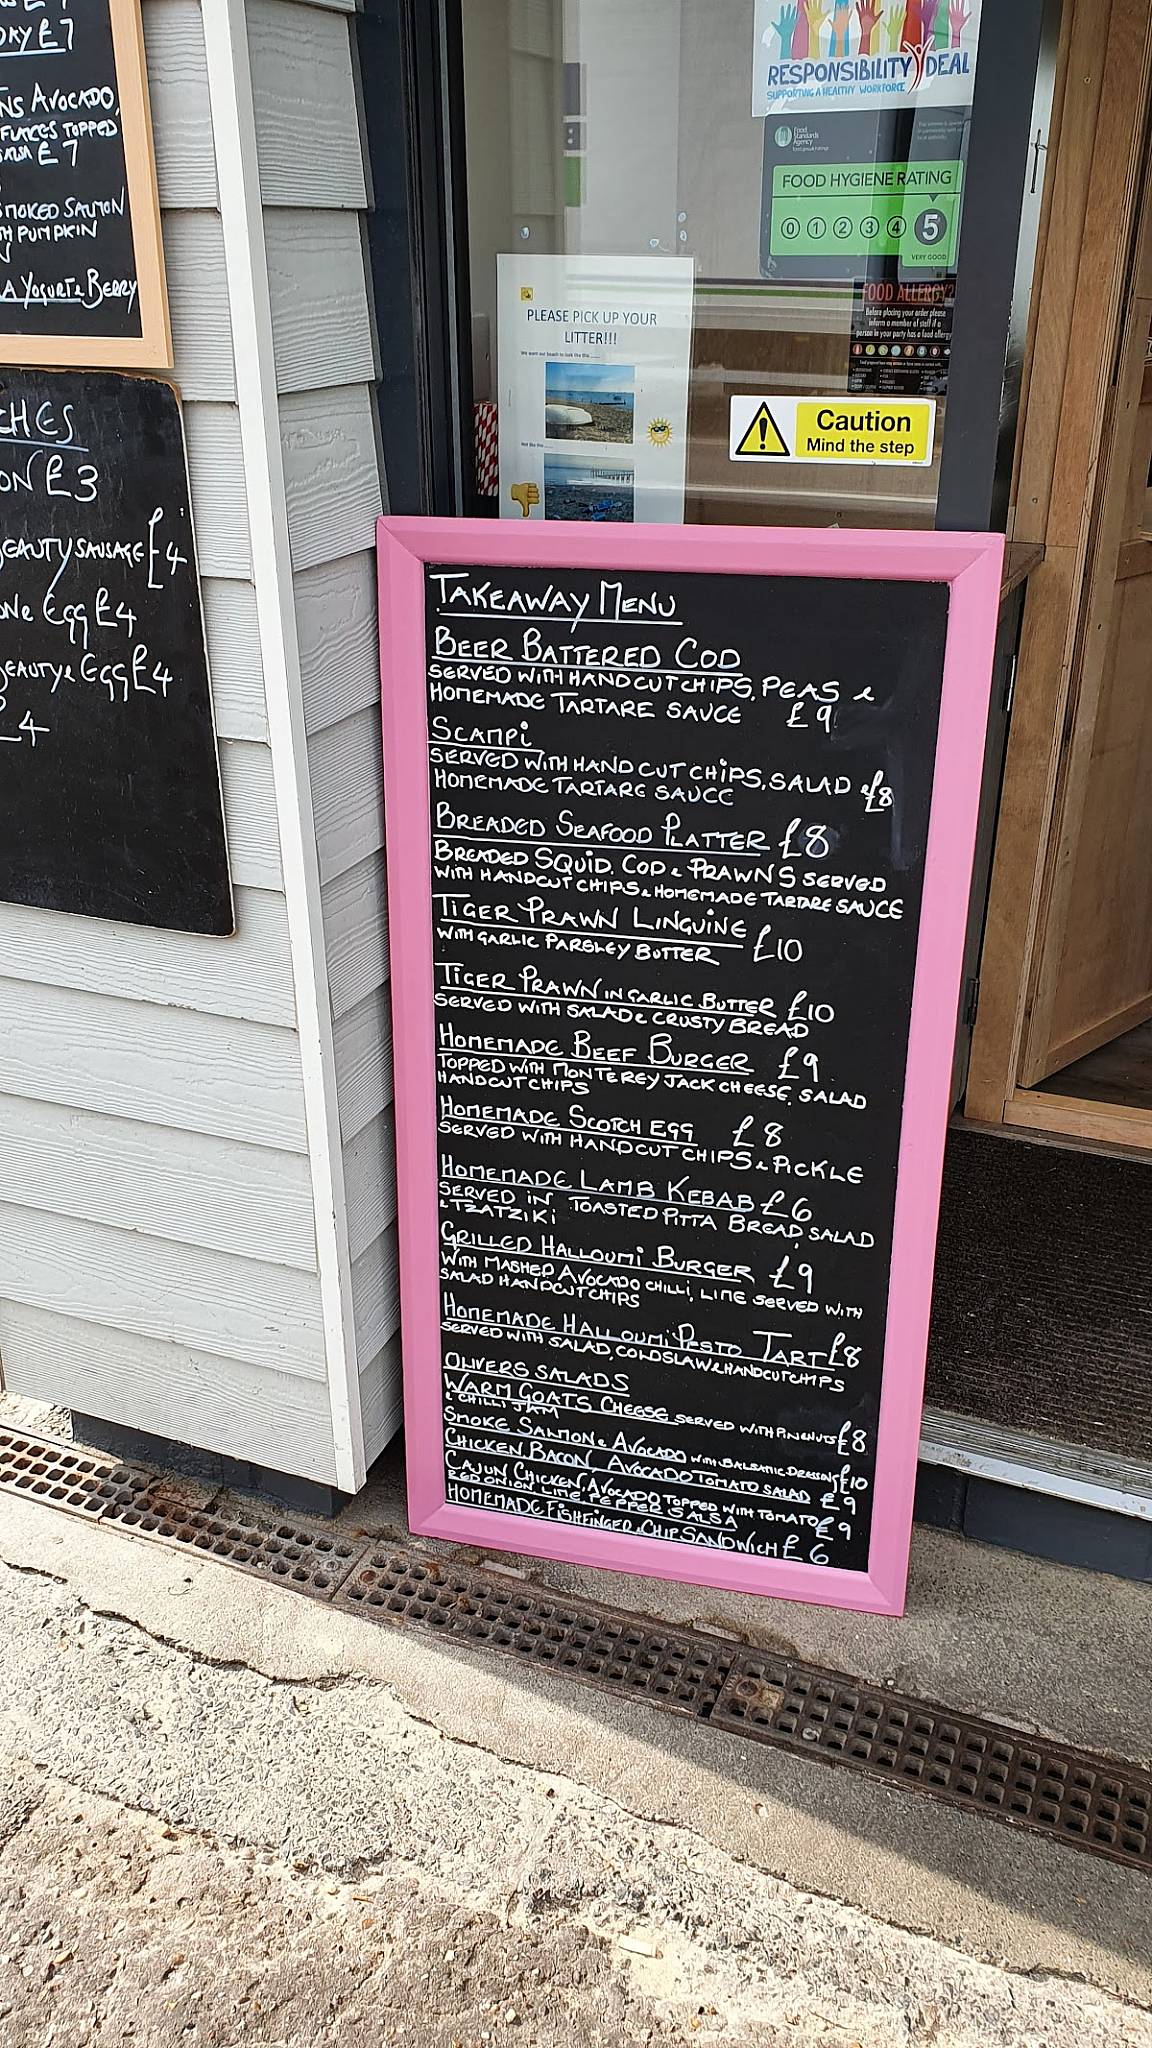 DRY £7
AVOCADO,
TOPPED
SALSA £7
SMOKED SALMON
PUMPKIN
YOGURT & BERRY
£3
BEAUTY SAUSAGE £4
EGG £4
BEAUTY & EGG £4
£4
RESPONSIBILITY DEAL
SUPPORTING A HEALTHY WORKFORCE
Food
Standards
Agency
FOOD HYGIENE RATING
0 1 2 3 4 5
VERY GOOD
FOOD ALLERGY?
Before placing your order please
inform a member of staff if a
person in your party has a food allergy
PLEASE PICK UP YOUR
LITTER!!!
We want our beach to look like this
Not like this
Caution
Mind the step
TAKEAWAY MENU
BEER BATTERED COD
SERVED WITH HANDCUT CHIPS, PEAS &
HOMEMADE TARTARE SAUCE £9
SCAMPI
SERVED WITH HAND CUT CHIPS, SALAD &
HOMEMADE TARTARE SAUCE £8
BREADED SEAFOOD PLATTER £8
BREADED SQUID. COD & PRAWNS SERVED
WITH HANDCUT CHIPS & HOMEMADE TARTARE SAUCE
TIGER PRAWN LINGUINE £10
WITH GARLIC PARSLEY BUTTER
TIGER PRAWN IN GARLIC BUTTER £10
SERVED WITH SALAD & CRUSTY BREAD
HOMEMADE BEEF BURGER £9
TOPPED WITH MONTEREY JACK CHEESE, SALAD
HANDCUT CHIPS
HOMEMADE SCOTCH EGG £8
SERVED WITH HANDCUT CHIPS & PICKLE
HOMEMADE LAMB KEBAB £6
SERVED IN TOASTED PITTA BREAD, SALAD
& TZATZIKI
GRILLED HALLOUMI BURGER £9
WITH MASHED AVOCADO CHILLI, LIME SERVED WITH
SALAD HANDCUT CHIPS
HOMEMADE HALLOUMI, PESTO TART £8
SERVED WITH SALAD, COLDSLAW & HANDCUT CHIPS
OLIVERS SALADS
WARM GOATS CHEESE SERVED WITH PINENUTS £8
& CHILLI JAM
SMOKE SALMON & AVOCADO WITH BALSAMIC DRESSING £10
CHICKEN BACON AVOCADO TOMATO SALAD £9
CAJUN CHICKEN, AVOCADO TOPPED WITH TOMATO £9
RED ONION LIME, PEPPER SALSA
HOMEMADE FISHFINGER & CHIP SANDWICH £6